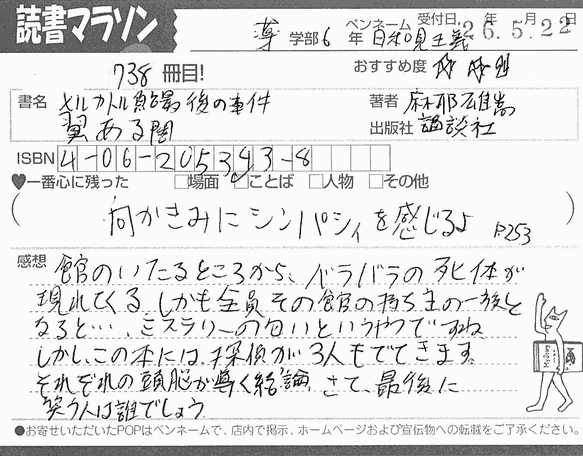 読書マラソン
学部6年 ペンネーム 日和見主義 受付日.26年.5月.22日
738 冊目!
おすすめ度
書名 メルカトル鮎最後の事件
翼ある闇
著者 麻耶雄嵩
出版社 講談社
ISBN 4-06-205343-8
♥一番心に残った □場面 □ことば □人物 □その他
(何かきみにシンパシィを感じるよ P253)
感想 館のいたるところから、バラバラの死体が
現れてくる。しかも全員その館の持ち主の一族と
なると…、ミステリーの匂いというやつですね。
しかし、この本には、探偵が3人もでてきます。
それぞれの頭脳が導く結論、さて、最後に
笑う人は誰でしょう
●お寄せいただいたPOPはペンネームで、店内で掲示、ホームページおよび宣伝物への転載をご了承ください。